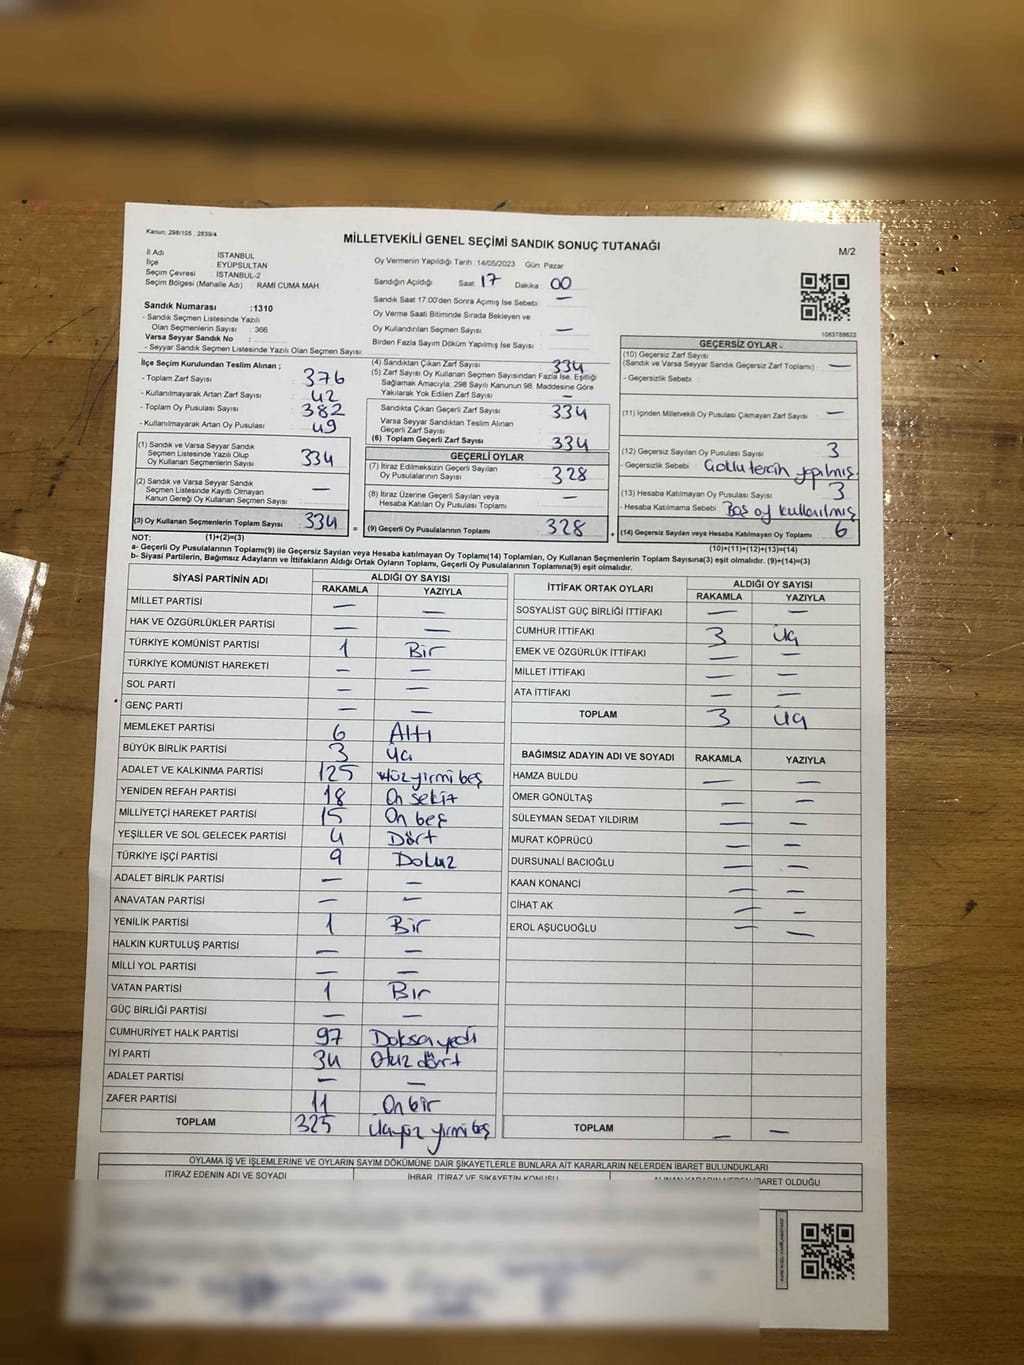 Kanun: 298/105 , 2839/4
MİLLETVEKİLİ GENEL SEÇİMİ SANDIK SONUÇ TUTANAĞI
M/2
İl Adı : İSTANBUL
İlçe : EYÜPSULTAN
Seçim Çevresi : İSTANBUL-2
Seçim Bölgesi (Mahalle Adı) : RAMİ CUMA MAH.
Oy Vermenin Yapıldığı Tarih :14/05/2023 Gün: Pazar
Sandığın Açıldığı Saat: 17 Dakika: 00
Sandık Saat 17.00'den Sonra Açılmış İse Sebebi : —
Oy Verme Saati Bitiminde Sırada Bekleyen ve
Oy Kullandırılan Seçmen Sayısı : —
Birden Fazla Sayım Döküm Yapılmış İse Sayısı :
1083788622
Sandık Numarası :1310
- Sandık Seçmen Listesinde Yazılı
Olan Seçmenlerin Sayısı : 366
Varsa Seyyar Sandık No :
- Seyyar Sandık Seçmen Listesinde Yazılı Olan Seçmen Sayısı :
İlçe Seçim Kurulundan Teslim Alınan ;
- Toplam Zarf Sayısı : 376
- Kullanılmayarak Artan Zarf Sayısı : 42
- Toplam Oy Pusulası Sayısı : 382
- Kullanılmayarak Artan Oy Pusulası : 49
(1) Sandık ve Varsa Seyyar Sandık
Seçmen Listesinde Yazılı Olup
Oy Kullanan Seçmenlerin Sayısı : 334
(2) Sandık ve Varsa Seyyar Sandık
Seçmen Listesinde Kayıtlı Olmayan
Kanun Gereği Oy Kullanan Seçmen Sayısı : —
(3) Oy Kullanan Seçmenlerin Toplam Sayısı : 334
(4) Sandıktan Çıkan Zarf Sayısı : 334
(5) Zarf Sayısı Oy Kullanan Seçmen Sayısından Fazla İse, Eşitliği
Sağlamak Amacıyla, 298 Sayılı Kanunun 98. Maddesine Göre
Yakılarak Yok Edilen Zarf Sayısı : —
Sandıkta Çıkan Geçerli Zarf Sayısı : 334
Varsa Seyyar Sandıktan Teslim Alınan
Geçerli Zarf Sayısı :
(6) Toplam Geçerli Zarf Sayısı : 334
GEÇERLİ OYLAR
(7) İtiraz Edilmeksizin Geçerli Sayılan
Oy Pusulalarının Sayısı : 328
(8) İtiraz Üzerine Geçerli Sayılan veya
Hesaba Katılan Oy Pusulaları Toplamı : —
= (9) Geçerli Oy Pusulalarının Toplamı : 328
GEÇERSİZ OYLAR
(10) Geçersiz Zarf Sayısı
(Sandık ve Varsa Seyyar Sandık Geçersiz Zarf Toplamı) : —
- Geçersizlik Sebebi :
(11) İçinden Milletvekili Oy Pusulası Çıkmayan Zarf Sayısı : —
(12) Geçersiz Sayılan Oy Pusulası Sayısı : 3
- Geçersizlik Sebebi : Çoklu tercih yapılmış
(13) Hesaba Katılmayan Oy Pusulası Sayısı : 3
- Hesaba Katılmama Sebebi : Boş oy kullanılmış
(14) Geçersiz Sayılan veya Hesaba Katılmayan Oy Toplamı : 6
NOT: (1)+(2)=(3)
(10)+(11)+(12)+(13)=(14)
a- Geçerli Oy Pusulalarının Toplamı(9) ile Geçersiz Sayılan veya Hesaba katılmayan Oy Toplamı(14) Toplamları, Oy Kullanan Seçmenlerin Toplam Sayısına(3) eşit olmalıdır. (9)+(14)=(3)
b- Siyasi Partilerin, Bağımsız Adayların ve İttifakların Aldığı Ortak Oyların Toplamı, Geçerli Oy Pusulalarının Toplamına(9) eşit olmalıdır.
SİYASİ PARTİNİN ADI ALDIĞI OY SAYISI
RAKAMLA YAZIYLA
MİLLET PARTİSİ — —
HAK VE ÖZGÜRLÜKLER PARTİSİ — —
TÜRKİYE KOMÜNİST PARTİSİ 1 Bir
TÜRKİYE KOMÜNİST HAREKETİ — —
SOL PARTİ — —
GENÇ PARTİ — —
MEMLEKET PARTİSİ 6 Altı
BÜYÜK BİRLİK PARTİSİ 3 üç
ADALET VE KALKINMA PARTİSİ 125 yüz yirmi beş
YENİDEN REFAH PARTİSİ 18 On sekiz
MİLLİYETÇİ HAREKET PARTİSİ 15 On beş
YEŞİLLER VE SOL GELECEK PARTİSİ 4 Dört
TÜRKİYE İŞÇİ PARTİSİ 9 Dokuz
ADALET BİRLİK PARTİSİ — —
ANAVATAN PARTİSİ — —
YENİLİK PARTİSİ 1 Bir
HALKIN KURTULUŞ PARTİSİ — —
MİLLİ YOL PARTİSİ — —
VATAN PARTİSİ 1 Bır
GÜÇ BİRLİĞİ PARTİSİ — —
CUMHURİYET HALK PARTİSİ 97 Doksan yedi
İYİ PARTİ 34 Otuz dört
ADALET PARTİSİ — —
ZAFER PARTİSİ 11 On bir
TOPLAM 325 üçyüz yirmi beş
İTTİFAK ORTAK OYLARI ALDIĞI OY SAYISI
RAKAMLA YAZIYLA
SOSYALİST GÜÇ BİRLİĞİ İTTİFAKI — —
CUMHUR İTTİFAKI 3 üç
EMEK VE ÖZGÜRLÜK İTTİFAKI — —
MİLLET İTTİFAKI — —
ATA İTTİFAKI — —
TOPLAM 3 üç
BAĞIMSIZ ADAYIN ADI VE SOYADI RAKAMLA YAZIYLA
HAMZA BULDU — —
ÖMER GÖNÜLTAŞ — —
SÜLEYMAN SEDAT YILDIRIM — —
MURAT KÖPRÜCÜ — —
DURSUNALİ BACIOĞLU — —
KAAN KONANCİ — —
CİHAT AK — —
EROL AŞUCUOĞLU — —
TOPLAM — —
OYLAMA İŞ VE İŞLEMLERİNE VE OYLARIN SAYIM DÖKÜMÜNE DAİR ŞİKAYETLERLE BUNLARA AİT KARARLARIN NELERDEN İBARET BULUNDUKLARI
İTİRAZ EDENİN ADI VE SOYADI İHBAR, İTİRAZ VE ŞİKAYETİN KONUSU ALINAN KARARIN NEDEN İBARET OLDUĞU